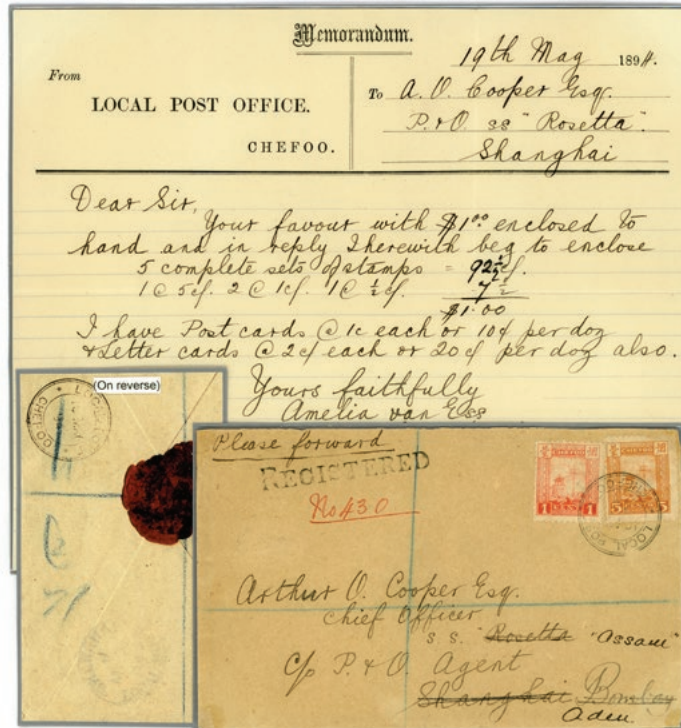 Memorandum.
19th May 1894.
From
To A. O. Cooper Esq.
LOCAL POST OFFICE.
P. & O. ss "Rosetta".
CHEFOO.
Shanghai
Dear Sir,
Your favour with $1.00 enclosed to
hand and in reply I herewith beg to enclose
5 complete sets of stamps = 92½ c/.
1 @ 5c/. 2 @ 1c/. 1 @ ½ c/. 7½
$1.00
I have Post cards @ 1c each or 10¢ per doz
& Letter cards @ 2c/ each or 20¢ per doz also.
Yours faithfully
Amelia van Ess
(On reverse)
LOCAL POST
CHEFOO
Please forward
REGISTERED
No 430
CHEFOO
1 CENT 1
5 5
LOCAL POST
Arthur O. Cooper Esq.
Chief Officer
s s. Rosetta "Assam"
c/o P. & O. Agent
Shanghai Bombay
Aden